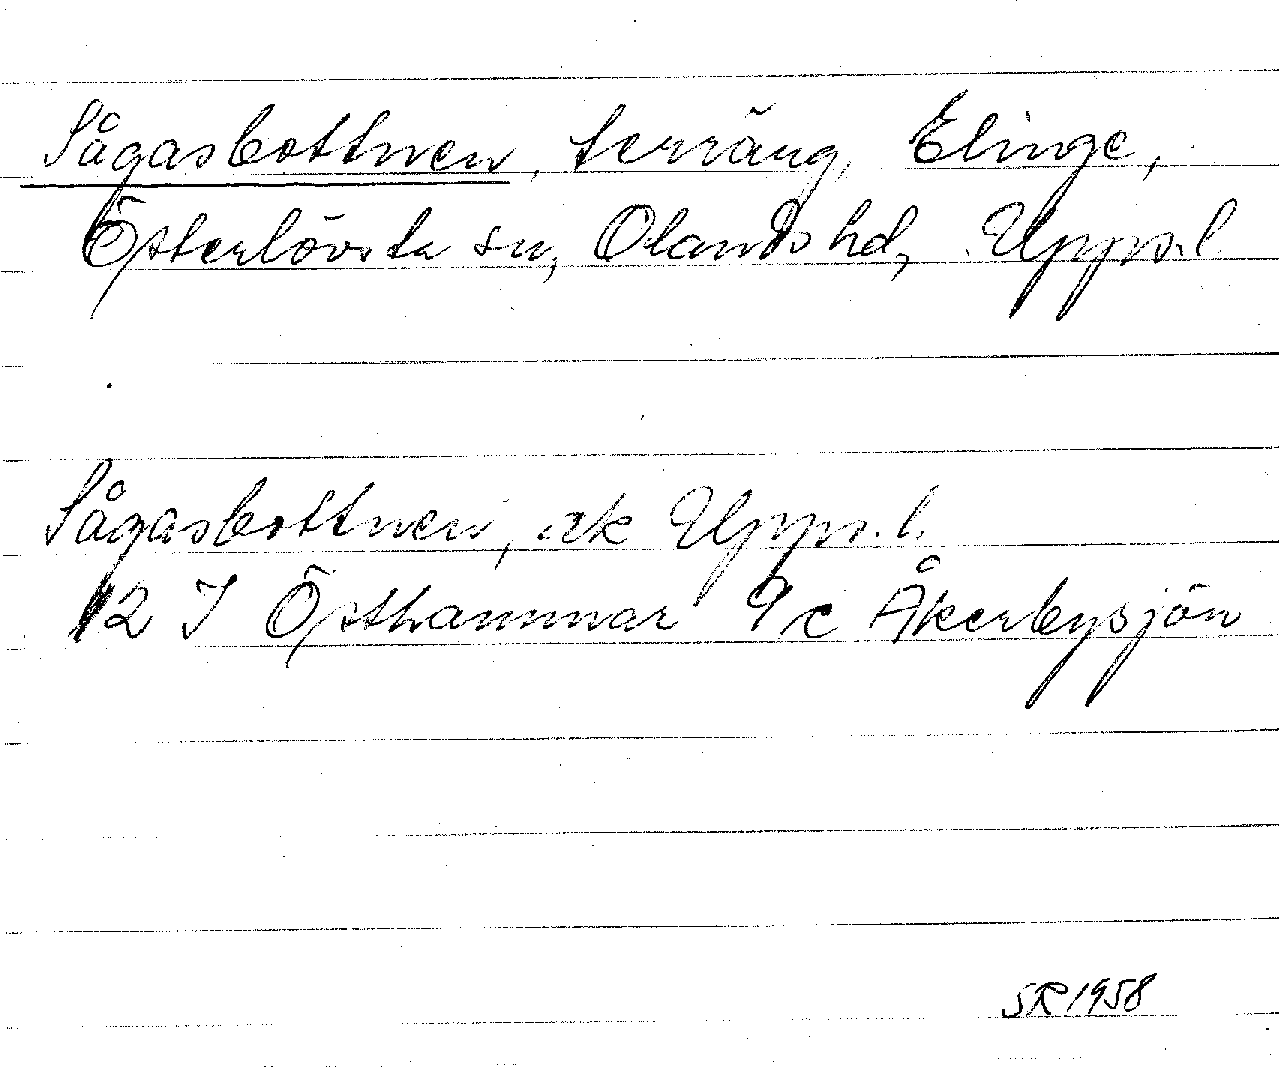 Sågasbottnen, terräng, Elinge,
Österlövsta sn, Olands hd, Upps.l.
Sågasbottnen, ek Upps.l.
12 I Östhammar 9/c Åkerbysjön
SR 1958